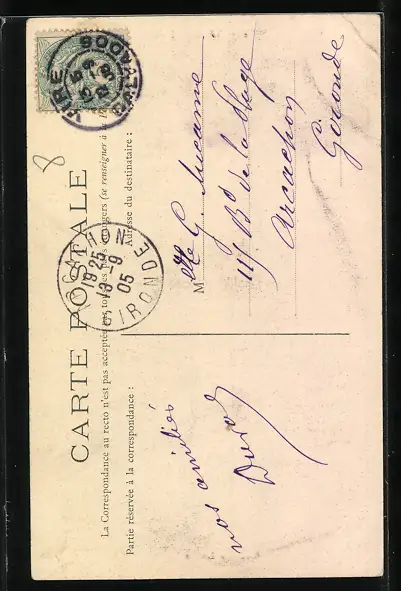 CARTE POSTALE
La Correspondance au recto n'est pas acceptée par tous les pays étrangers (se renseigner à la
Partie réservée à la correspondance :
Adresse du destinataire :
vos amitiés
M
G.
Bd de la Plage
Arcachon
Gironde
ARCACHON
19 25
13 - 9
05
GIRONDE
VIRE
CALVADOS
8